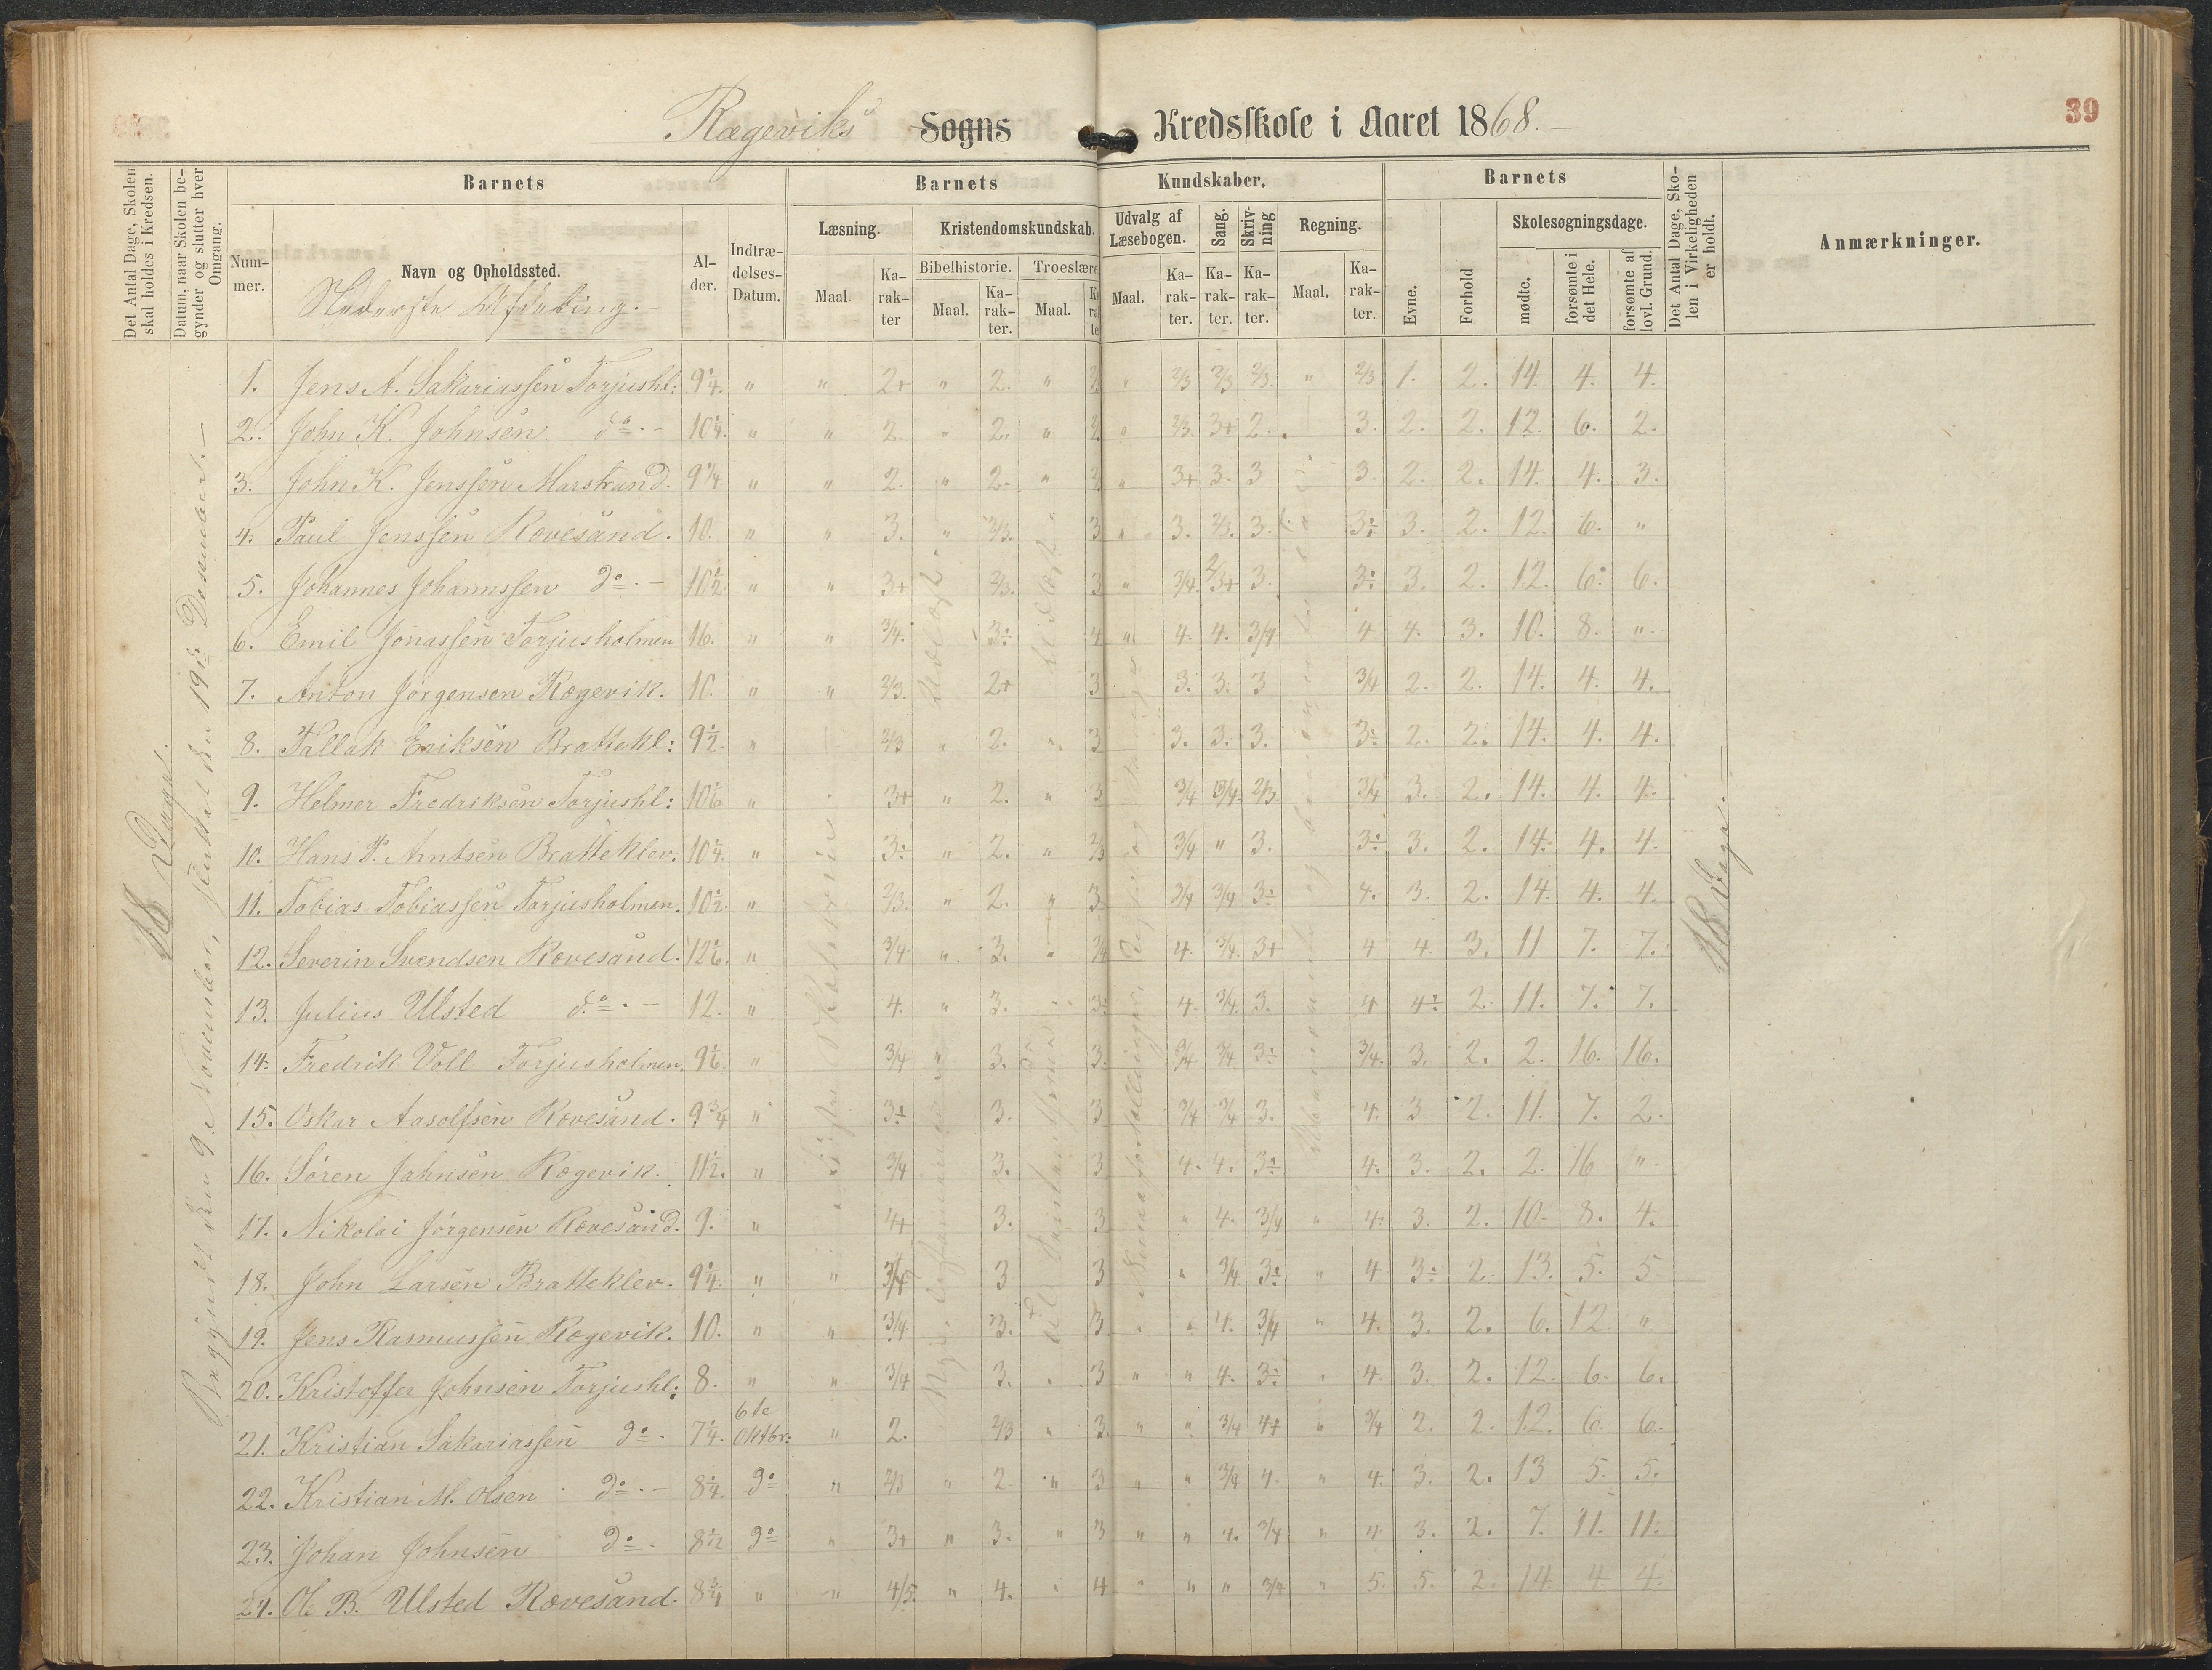 Rægeviks Sogns Kredsskole i Aaret 1868. 39
Det Antal Dage, Skolen skal holdes i Kredsen.
Datum, naar Skolen begynder og slutter hver Omgang.
Barnets Barnets Kundskaber. Barnets
Det Antal Dage, Skolen i Virkeligheden er holdt.
Anmærkninger.
Nummer. Navn og Opholdssted. Alder. Indtrædelses-Datum.
Læsning. Kristendomskundskab. Udvalg af Læsebogen. Sang. Skrivning Regning. Evne. Forhold Skolesøgningsdage.
Bibelhistorie. Troeslære
Maal. Karakter Maal. Karakter. Maal. Maal. Karakter. Karakter. Karakter. Maal. Karakter. mødte. forsømte i det Hele. forsømte af lovl. Grund.
Nederste Afdeling.
18 Dage.
Begyndt den 9de November, sluttet den 19de Desember.
18 Dage.
1. Jens A. Sakariassen Torjushl: 9 1/4. " " 2+ " 2. " " 2/3 2/3 2/3. " 2/3 1. 2. 14. 4. 4.
2. John K. Johnsen do. 10 1/4. " " 2. " 2. " " 2/3. 3+ 2. 3. 2. 2. 12. 6. 2.
3. John K. Jenssen Marstrand. 9 1/4 " " 2. " 2- " " 3+ 3. 3 3. 2. 2. 14. 4. 3.
4. Paul Jenssen Rævesand. 10. " " 3. " 2/3. " 3 " 3. 2/3. 3. 3÷ 3. 2. 12. 6. "
5. Johannes Johannssen do. 10 1/2. " " 3+ 2/3. 3 " 3/4. 2/3+ 3. 3÷ 3. 2. 12. 6. 6.
6. Emil Jonassen Torjusholmen 16. " " 3/4. 3÷ 4 " 4. 4. 3/4 4 4. 3. 10. 8. "
7. Anton Jörgensen Rægevik. 10. " " 2/3. 2+ 3 3. 3. 3 3/4 2. 2. 14. 4. 4.
8. Tallak Eriksen Brattekl: 9 1/2. " 2/3 " 2. " 3 3. 3. 3. 3÷ 2. 2. 14. 4. 4.
9. Helmer Fredriksen Torjushl: 10 1/6 " 3+ " 2. " 3 3/4 3/4. 2/3 3/4 3. 2. 14. 4. 4.
10. Hans P. Arntsen Bratteklev. 10 1/4. " 3÷ " 2. " 2/3 3/4 " 3. 3÷ 3. 2. 14. 4. 4.
11. Tobias Tobiassen Torjusholmen. 10 1/2. " 2/3. " 2. " 3 3/4 3/4 3÷ 4. 3. 2. 14. 4. 4.
12. Severin Svendsen Rævesand. 12 1/6. " 3/4 " 3. " 3/4 4. 3/4. 3+ 4 4. 3. 11 7. 7.
13. Julius Ulsted do. 12. " 4. " 3. 3÷ 4. 3/4. 3. 4 4÷ 2. 11. 7. 7.
14. Fredrik Voll Torjusholmen. 9 1/6. " 3/4 " 3. 3. 3/4. 3/4. 3÷ 3/4. 3. 2. 2. 16. 16.
15. Oskar Aasolfsen Rævesand. 9 3/4 " 3÷ 3. 3 3/4 3/4 3. 4. 3 2. 11. 7. 2.
16. Sören Jahnsen Rægevik. 11 1/2. " 3/4 3. 3 4. 4. 3÷ 4. 3. 2. 2. 16 "
17. Nikolai Jörgensen Rævesand. 9. " 4+ 3. 3 " 4. 3/4 " 4÷ 3. 2. 10. 8. 4.
18. John Larsen Bratteklev. 9 1/4. " " 3/4 3 3 " 3/4. 3÷ " 4 3÷ 2. 13. 5. 5.
19. Jens Rasmussen Rægevik. 10. " " 3/4 3. 3 " " 4. 3/4 " 4. 3. 2. 6. 12. "
20. Kristoffer Johnsen Torjushl: 8. " " 3/4 3. " 3 " " 4. 3÷ " 4. 3. 2. 12. 6. 6.
21. Kristian Sakariassen do. 7 1/4. 6te Oktbr: " 2. 2/3 " 3. " " 3/4 4+ " 3/4 2. 2. 12. 6. 6.
22. Kristian M. Olsen do. 8 1/4. do " 2/3 " 2. " 3 " " 3/4 4. " 4. 3. 2. 13 5. 5.
23. Johan Johnsen do. 8 1/2 do " 3+ " 3. " 3 " " 4. 3/4 " 4 3. 2. 7. 11. 11.
24. Ol. B. Ulsted Rævesand. 8 3/4 " " 4/5. " 4. " 4 " " " 3/4 " 5. 5. 2. 14. 4. 4.